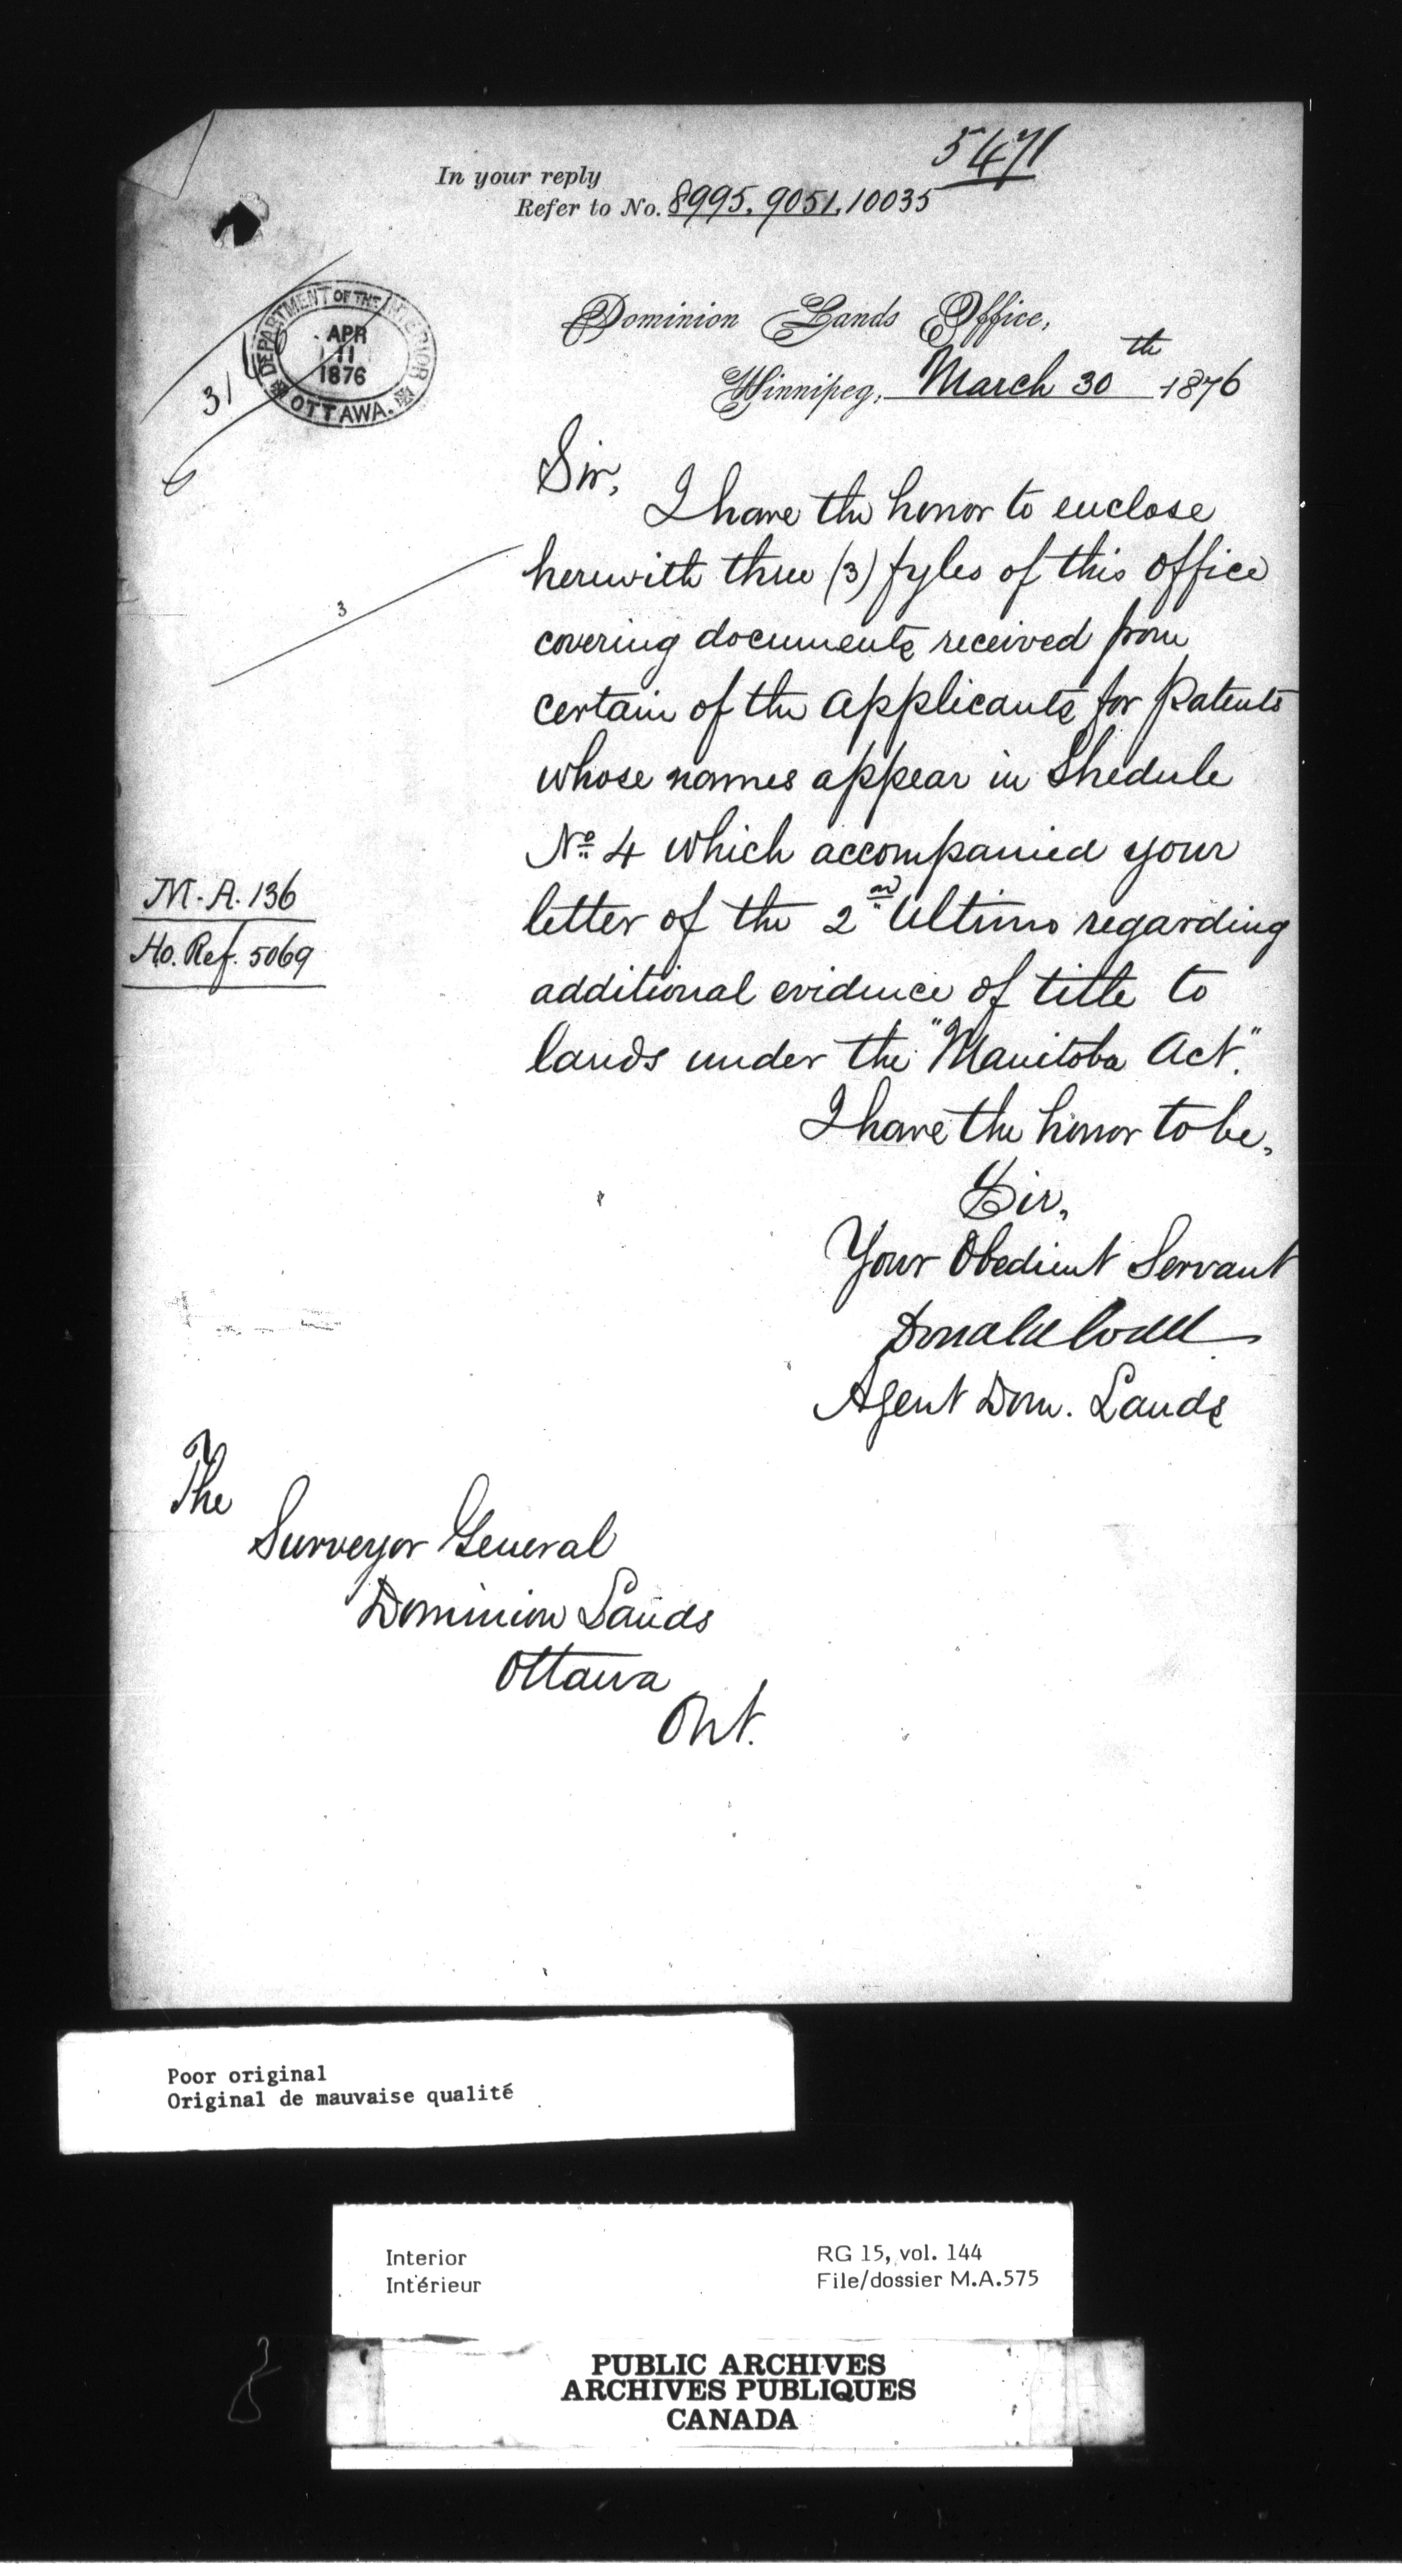 5471
In your reply
Refer to No. 8995. 9051. 10035
DEPARTMENT OF THE INTERIOR
APR
11
1876
OTTAWA.
31
Dominion Lands Office,
Winnipeg, March 30th 1876
Sir,
I have the honor to enclose
herewith three (3) fyles of this office
3
covering documents received from
certain of the applicants for Patents
whose names appear in Shedule
No 4 which accompanied your
M.A. 136
letter of the 2nd Ultimo regarding
Ho. Ref. 5069
additional evidence of title to
lands under the "Manitoba Act".
I have the honor to be,
Sir,
Your Obedient Servant
Donald Codd
Agent Dom. Lands
The
Surveyor General
Dominion Lands
Ottawa
Ont.
Poor original
Original de mauvaise qualité
Interior
Intérieur
RG 15, vol. 144
File/dossier M.A.575
PUBLIC ARCHIVES
ARCHIVES PUBLIQUES
CANADA